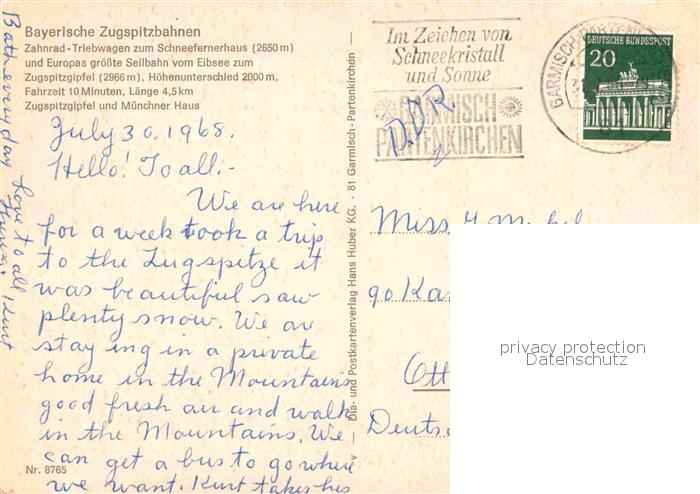 Bayerische Zugspitzbahnen
Zahnrad-Triebwagen zum Schneefernerhaus (2650 m)
und Europas größte Seilbahn vom Eibsee zum
Zugspitzgipfel (2966 m), Höhenunterschied 2000 m,
Fahrzeit 10 Minuten, Länge 4,5 km
Zugspitzgipfel und Münchner Haus
July 30. 1968.
Hello! To all.-
We are here
for a week took a trip
to the Zugspitze it
was beautiful saw
plenty snow. We are
staying in a private
home in the Mountains
good fresh air and walk
in the Mountains. We
can get a bus to go where
we want. Kurt takes his
Bath every day Love to all
Kurt
Nr. 8765
Dia- und Postkartenverlag Hans Huber KG. · 81 Garmisch-Partenkirchen
Im Zeichen von
Schneekristall
und Sonne
GARMISCH
PARTENKIRCHEN
D.D.R.
GARMISCH
DEUTSCHE BUNDESPOST
20
Miss
go
Ott
Deutsc
privacy protection
Datenschutz